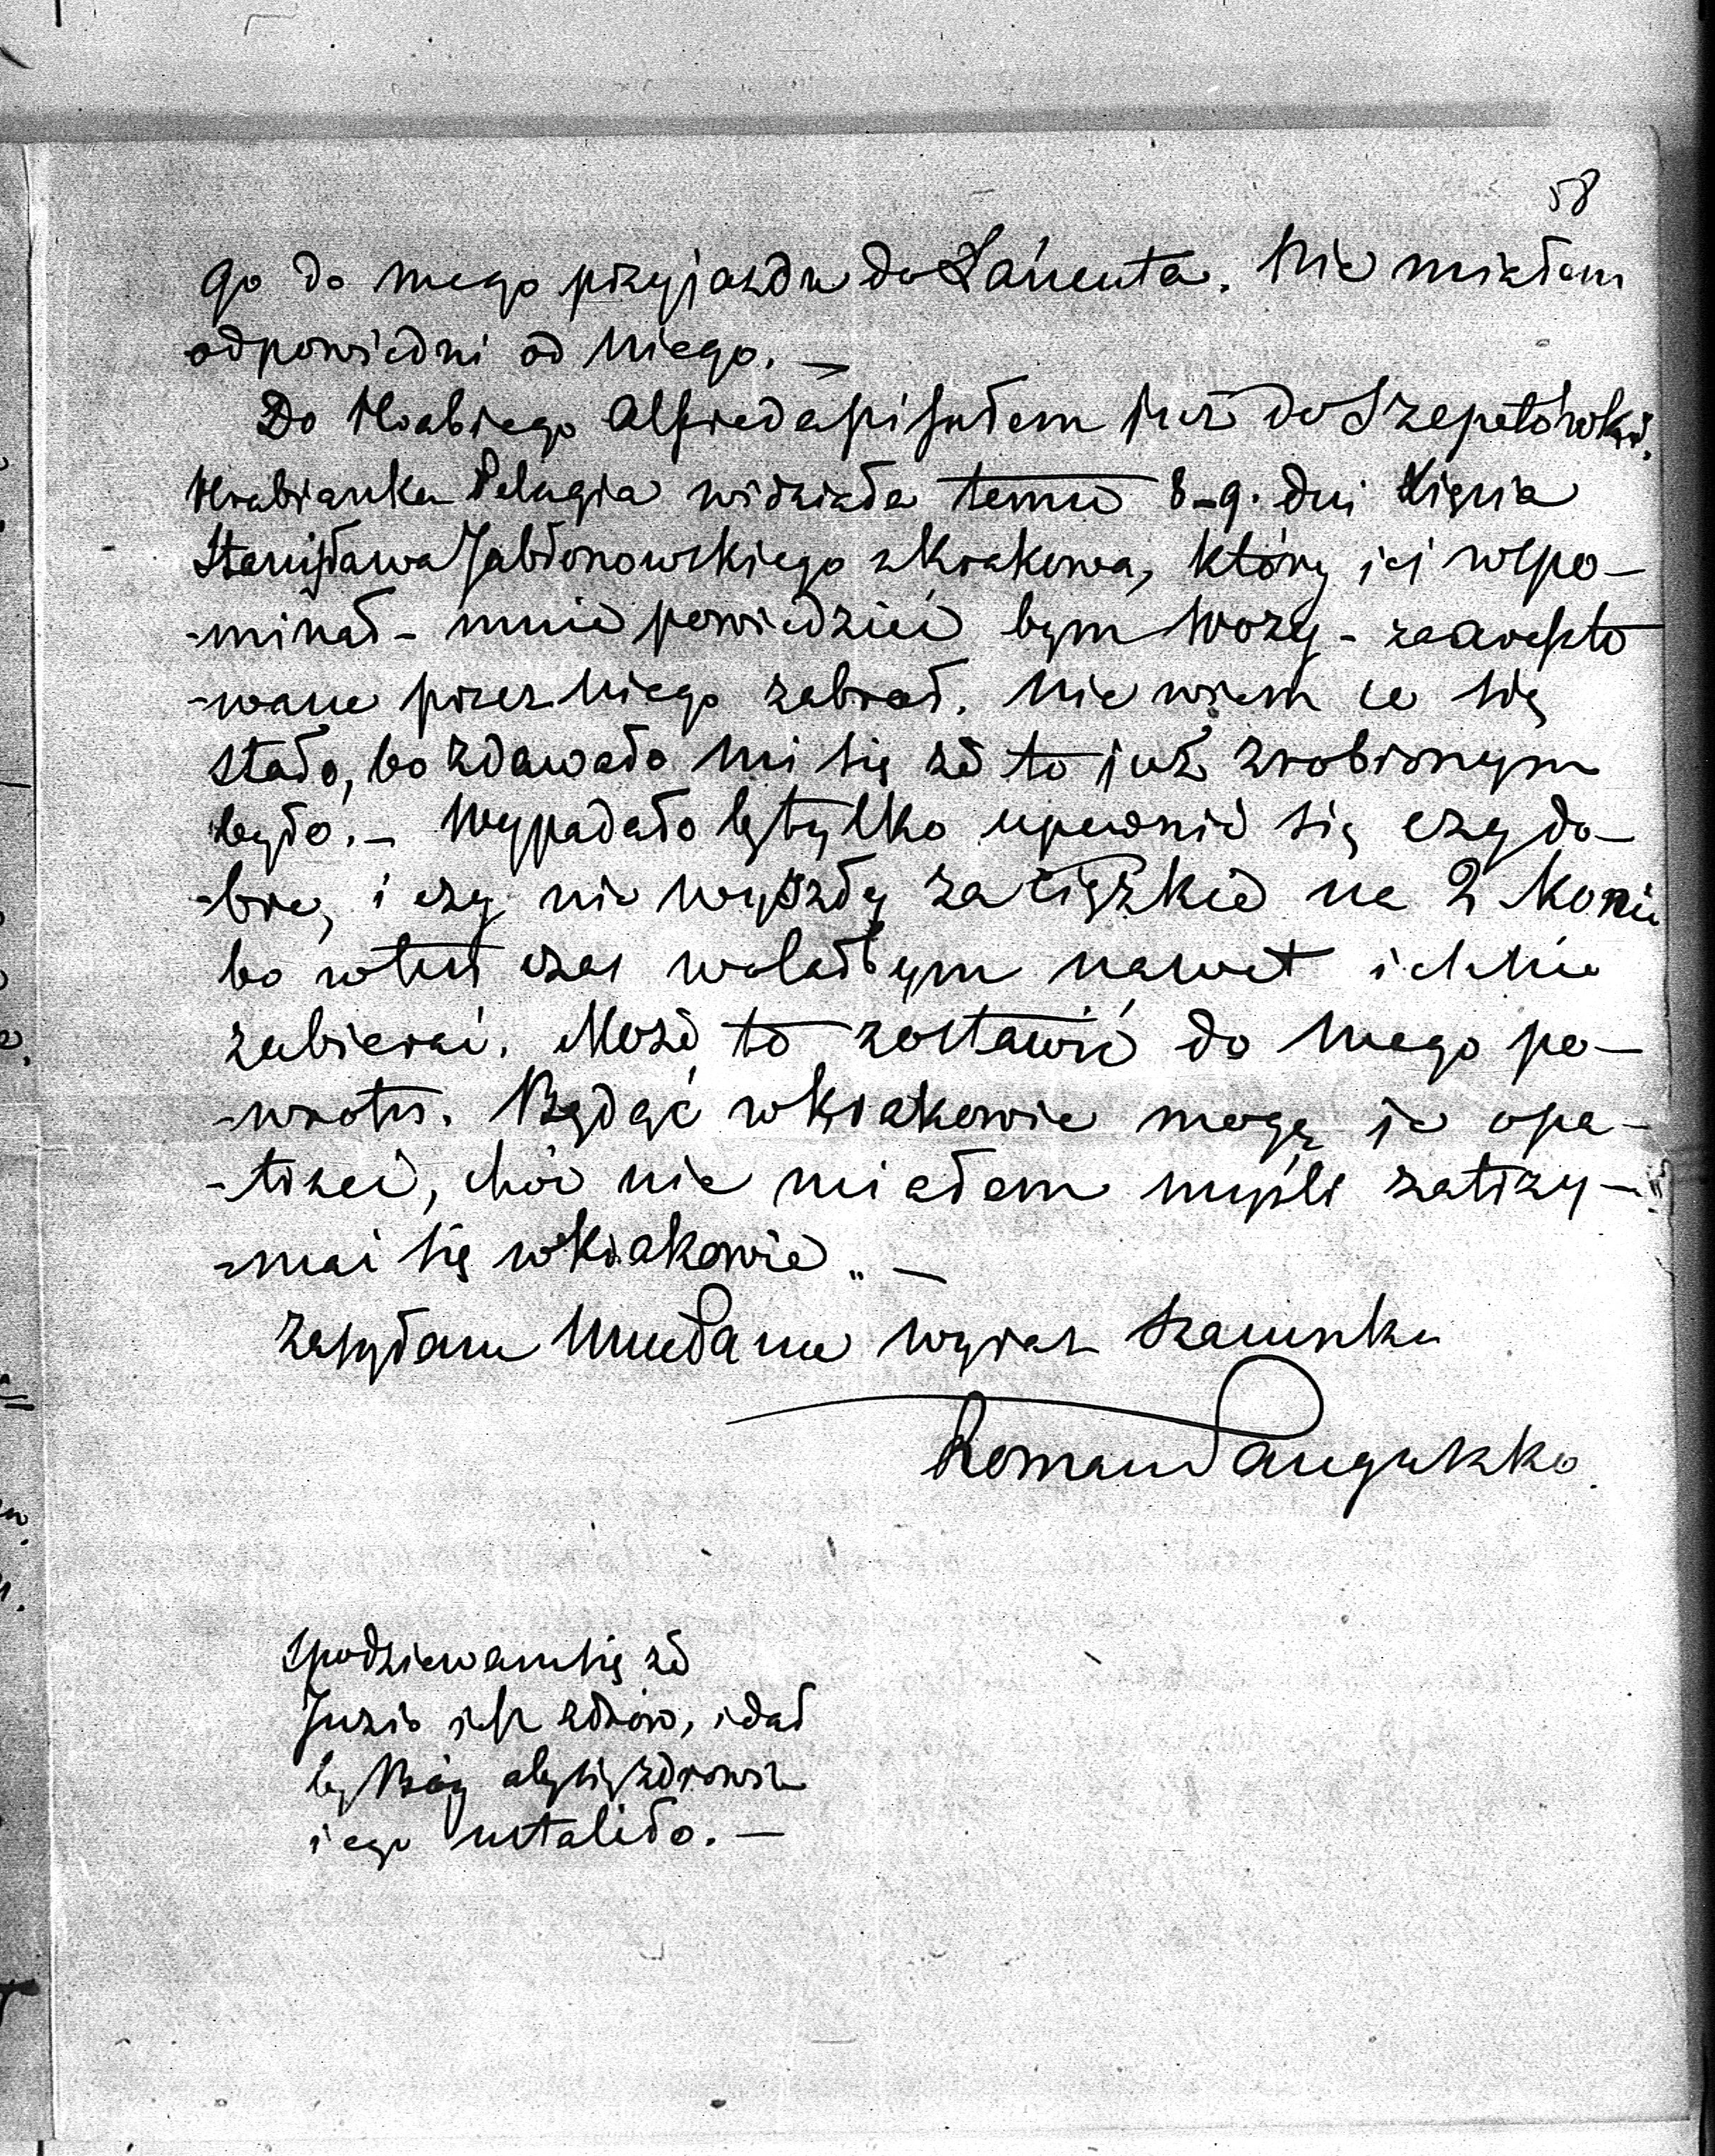 58
go do mego przyjazdu do Łańcuta. Nie miałem
odpowiedni od Niego. —
Do Hrabiego Alfreda pisałem już do Szepetówki,
Hrabianka Pelagia widziała temu 8-9. dni Xięcia
Stanisława Jabłonowskiego z Krakowa, który jej wspo-
-minał - mnie powiedzieć bym Wozy - zaakcepto
-wane przez Niego zabrał. Nie wiem co się
stało, bo zdawało mi się że to już zrobionym
było. - Wypadało by tylko upewnić się czy do-
-bre, i czy nie wyszły za ciężkie na 2 konie
bo w ten czas wolałbym nawet ich nie
zabierać. Może to zostawić do mego po-
-wrotu. Będąć w Krakowie mogę je opa-
-trzeć, choć nie miałem myśli zatrzy-
-mać się w Krakowie. —
Zasyłam Mu Pana wyraz szacunku
Roman Sanguszko.
Spodziewam się że
Juzio jest zdrów, i dał
by Bóg aby się zdrowie
jego ustaliło. —